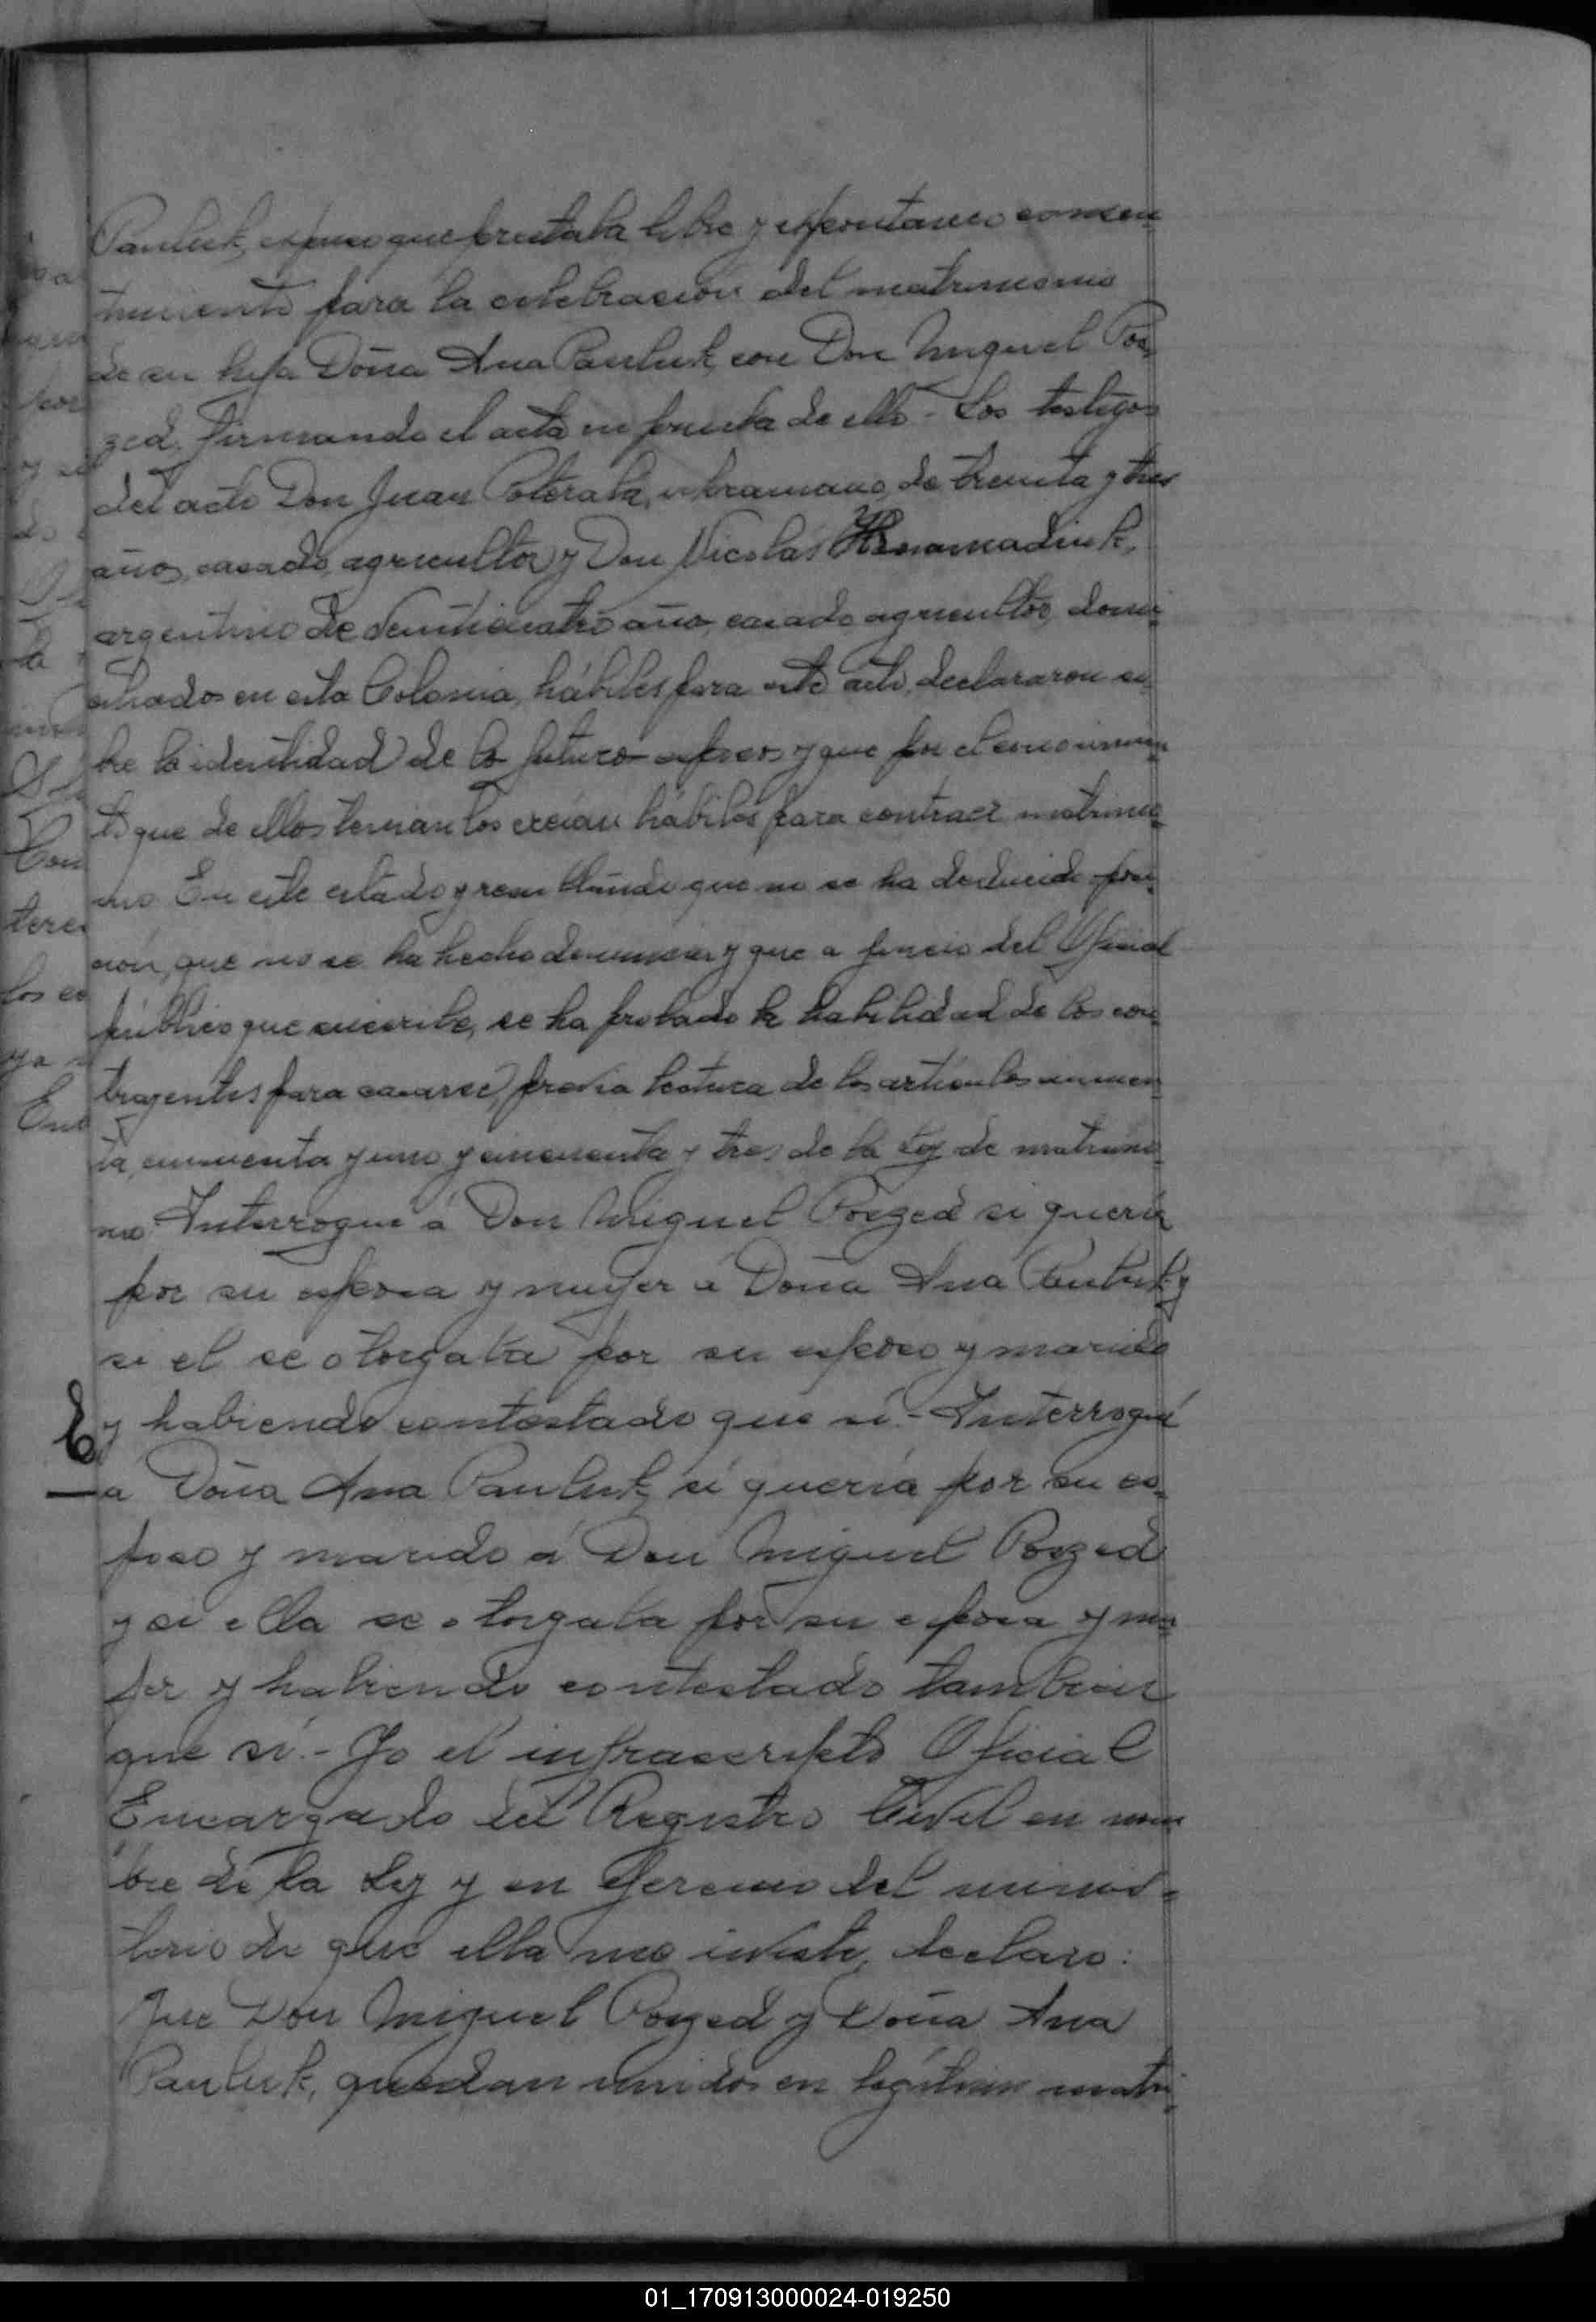 Pauluk, expuso que prestaba libre y espontaneo consen-
timiento para la celebración del matrimonio
de su hija Doña Ana Pauluk, con Don Miguel Poe-
zed, firmando el acta en prueba de ello.- Los testigos
del acto Don Juan ukraniano, de treinta y tres
años, casado, agricultor y Don Nicolás
argentino de veinticuatro años, casado agricultor, domi-
ciliados en esta Colonia, hábiles para este acto, declararon so-
bre la identidad de los futuros esposos y que por el conocimien-
to que de ellos tenian los creían hábiles para contraer matrimo-
nio. En este estado y resultando que no se ha deducido oposi-
ción, que no se ha hecho denuncia y que a juicio del Oficial
público que suscribe, se ha probado la habilidad de los con-
trayentes para casarse, previa lectura de los artículos cincuen-
ta, cincuenta y uno y cincuenta y tres de la Ley de matrimo-
nio. Interrogué á Don Miguel Poezed si quería
por su esposa y mujer á Doña Ana Pauluk y
si el se otorgaba por su esposo y marido
y habiendo contestado que sí.- Interrogué
a Doña Ana Pauluk, si quería por su es-
poso y marido á Don Miguel Poezed
y si ella se otorgaba por su esposa y mu-
jer y habiendo contestado tambien
que sí.- Yo el infrascripto Oficial
Encargado del Registro Civil en nom-
bre de la Ley y en ejercicio del minis-
terio de que ella me inviste, declaro:
Que Don Miguel Poezed y Doña Ana
Pauluk, quedan unidos en legítimo matri-
01_170913000024-019250